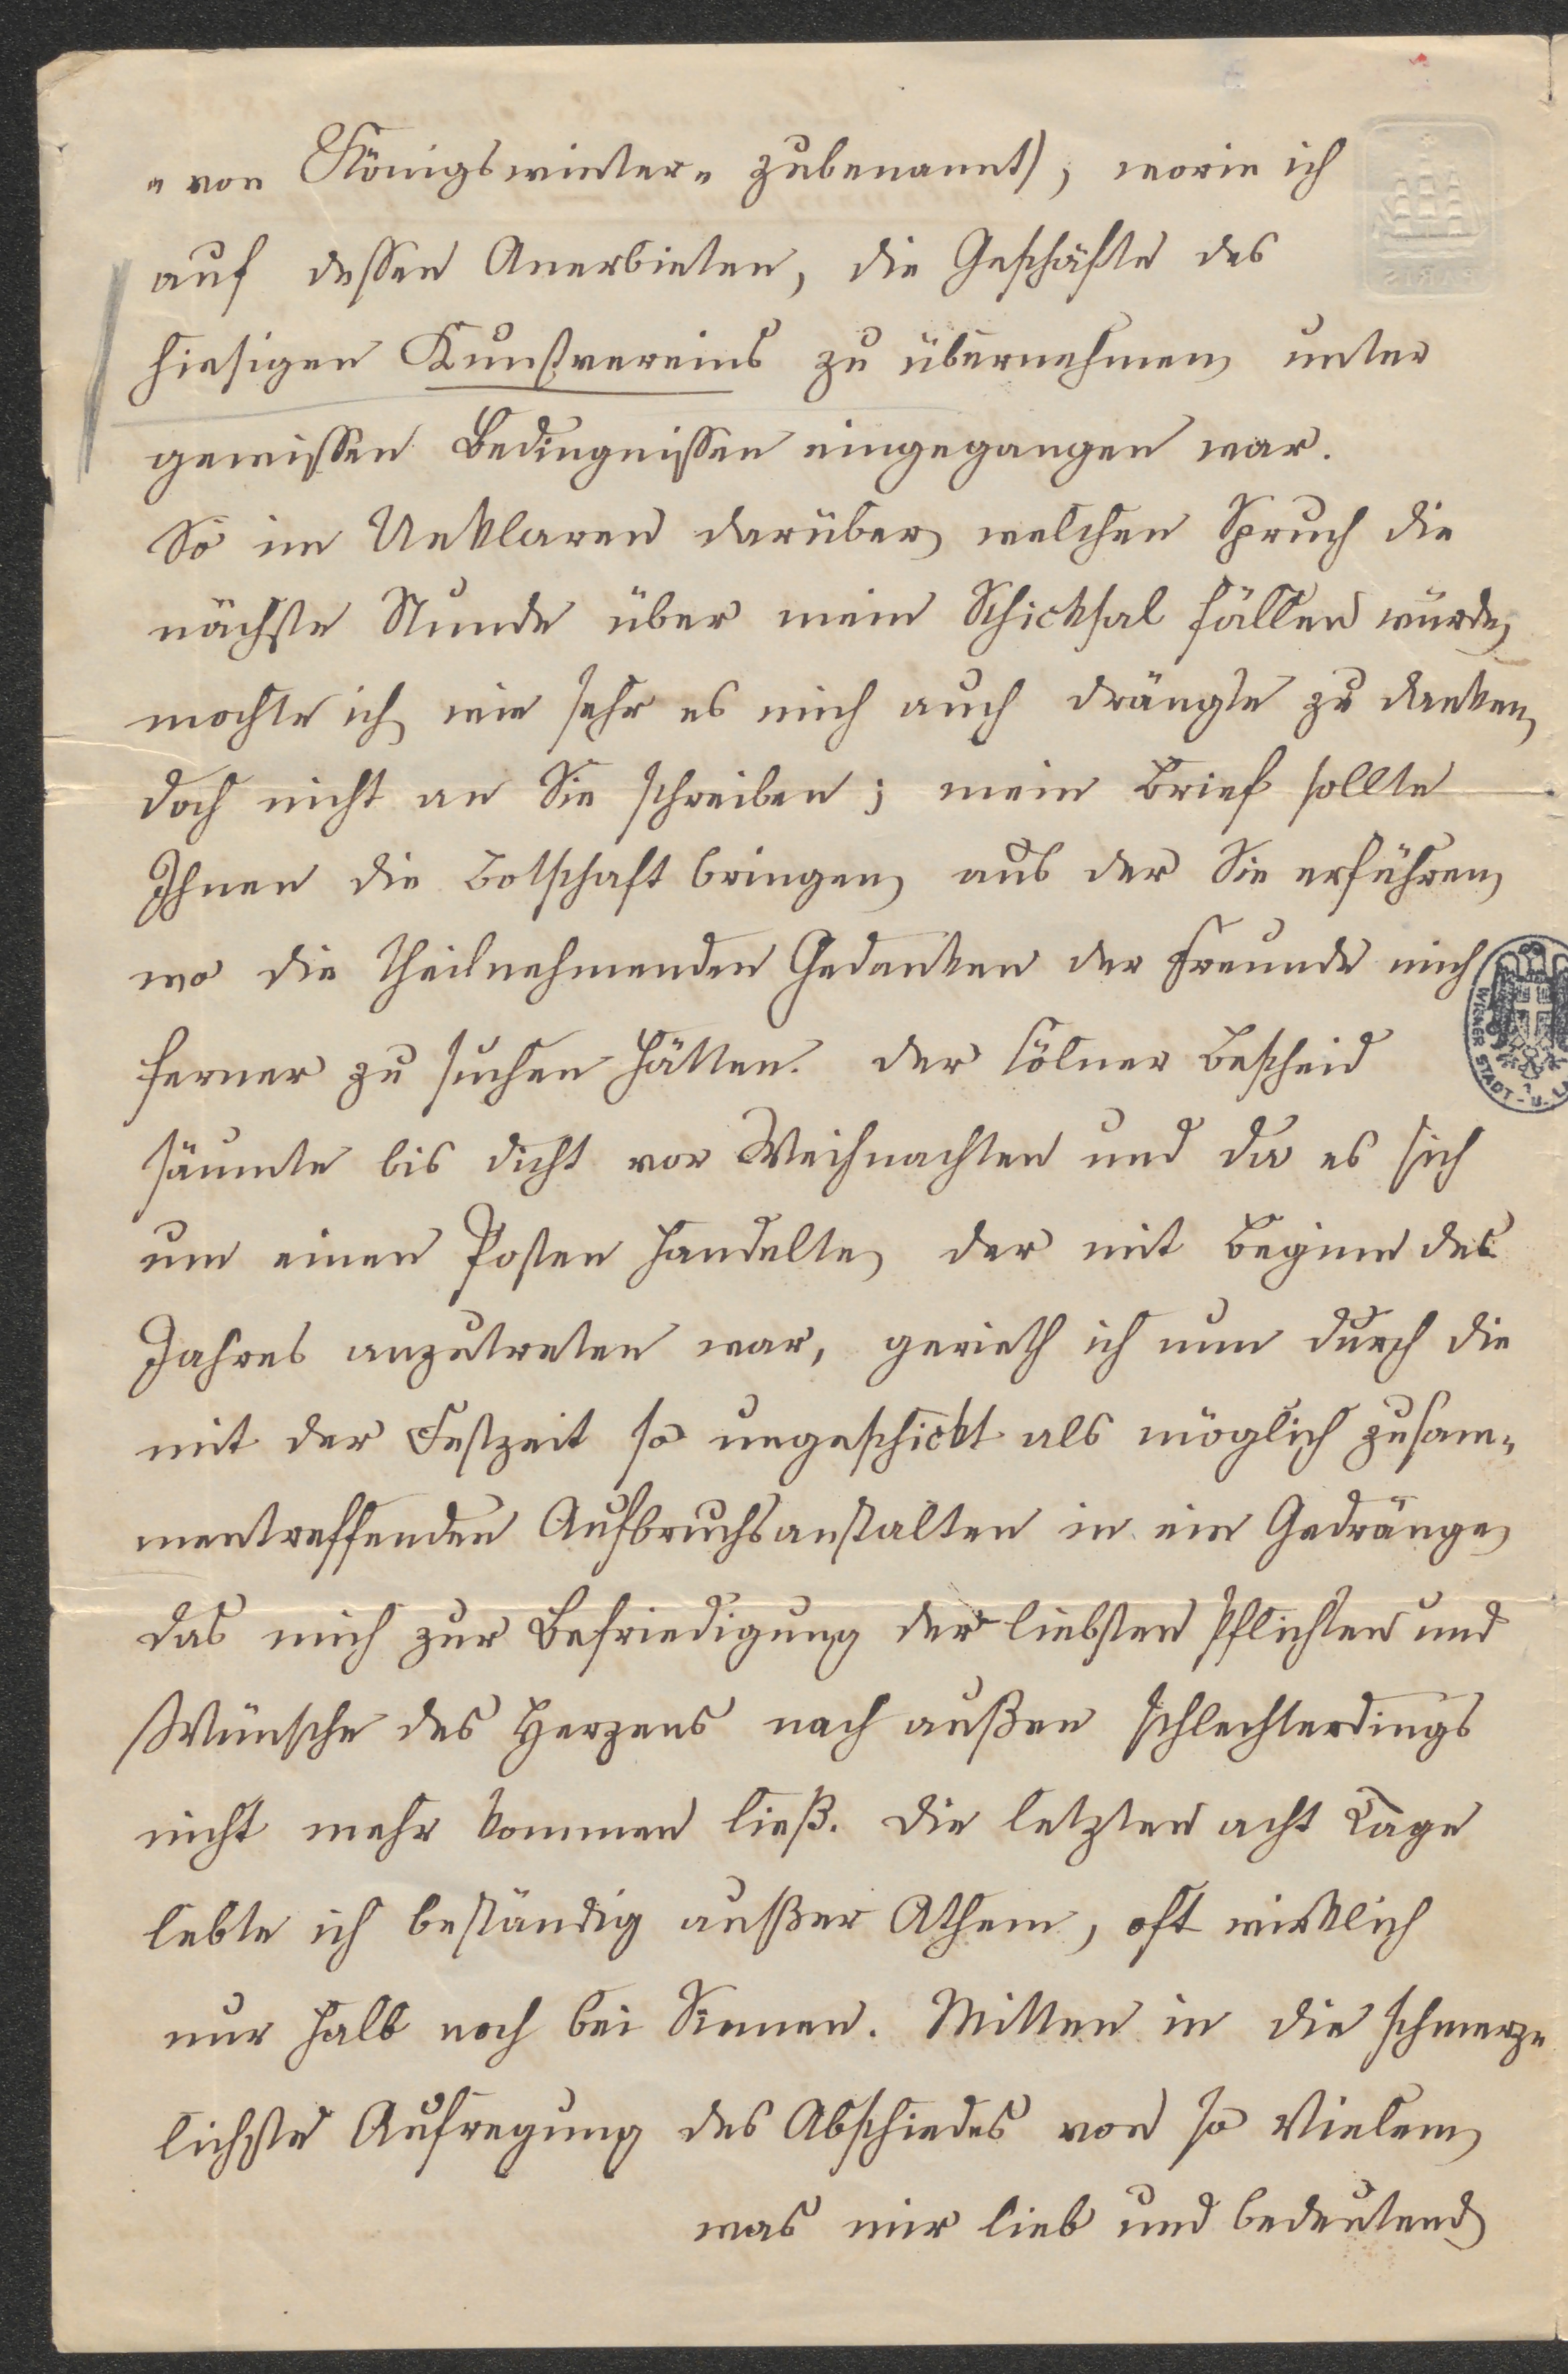 "von Königswinter" zubenannt), worin ich
auf dessen Anerbieten, die Geschäfte des
hiesigen Kunstvereins zu übernehmen, unter
gewissen Bedingnissen eingegangen war.
So im Unklaren darüber, welchen Spruch die
nächste Stunde über mein Schicksal fällen würde,
mochte ich, wie sehr es mich auch drängte zu danken,
doch nicht an Sie schreiben; mein Brief sollte
Ihnen die Botschaft bringen, aus der Sie erführen,
wo die theilnehmenden Gedanken der Freunde mich
ferner zu suchen hätten. Der Cölner Bescheid
säumte bis dicht vor Weihnachten und da es sich
um einen Posten handelte, der mit Beginn des
Jahres anzutreten war, gerieth ich nun durch die
mit der Festzeit so ungeschickt als möglich zusam-
mentreffenden Aufbruchsanstalten in ein Gedränge,
das mich zur Befriedigung der liebsten Pflichten und
Wünsche des Herzens nach außen schlechterdings
nicht mehr kommen ließ. Die letzten acht Tage
lebte ich beständig außer Athem, oft wirklich
nur halb noch bei Sinnen. Mitten in die schmerz-
lichste Aufregung des Abschiedes von so Vielem,
was mir lieb und bedeutend,
WIENER STADT- U. L
PARIS